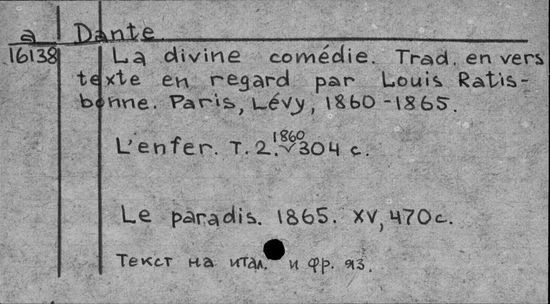 a Dante
16138 La divine comédie. Trad. en vers
texte en regard par Louis Ratis-
bonne. Paris, Lévy, 1860-1865.
L'enfer. T. 2. 1860 304 c.
Le paradis. 1865. XV, 470c.
Текст на итал. и фр. яз.